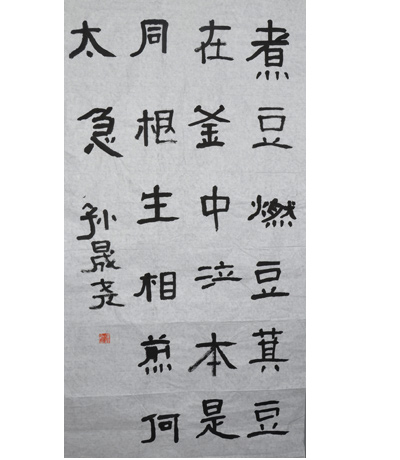 煮豆燃豆萁豆
在釜中泣本是
同根生相煎何
太急
孙晟尧